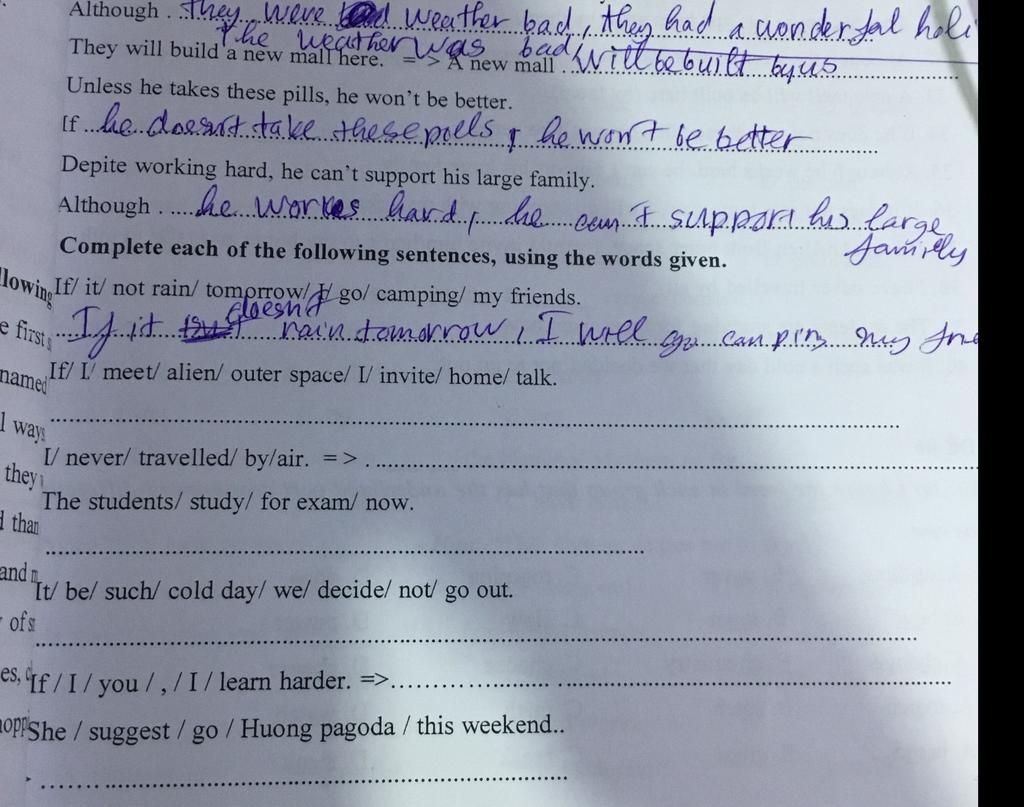 Although . They were bad weather bad, they had a wonderfal holi
The weather was bad
They will build a new mall here. = > A new mall .. will be built by us
Unless he takes these pills, he won't be better.
If ... he doesn't take these pills, he won't be better
Depite working hard, he can't support his large family.
Although . .... he works hard, he can't support his large
family
Complete each of the following sentences, using the words given.
llowing If/ it/ not rain/ tomorrow/ I/ go/ camping/ my friends.
doesn't
e first If it rain tomorrow, I will go camping my
named If/ I/ meet/ alien/ outer space/ I/ invite/ home/ talk.
l ways
they I/ never/ travelled/ by/air. = > .
The students/ study/ for exam/ now.
d than
and
It/ be/ such/ cold day/ we/ decide/ not/ go out.
of s
es, If / I / you / , / I / learn harder. =>
opp She / suggest / go / Huong pagoda / this weekend..